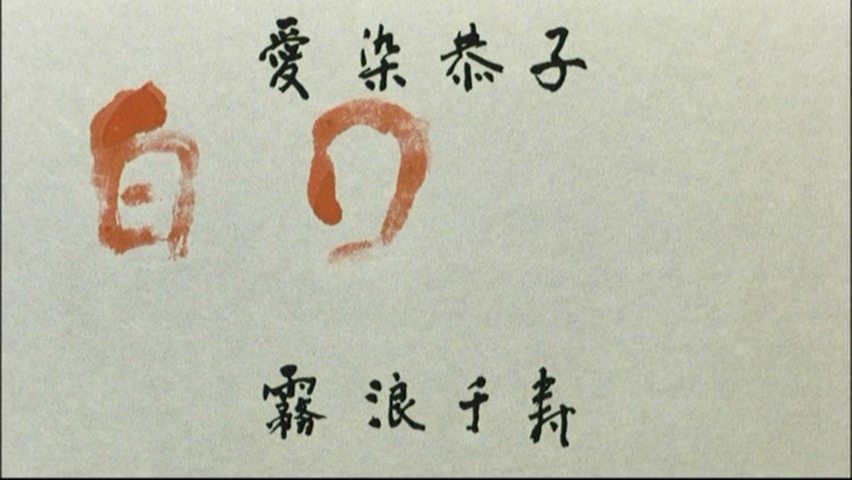 愛染恭子
白
霧浪千寿